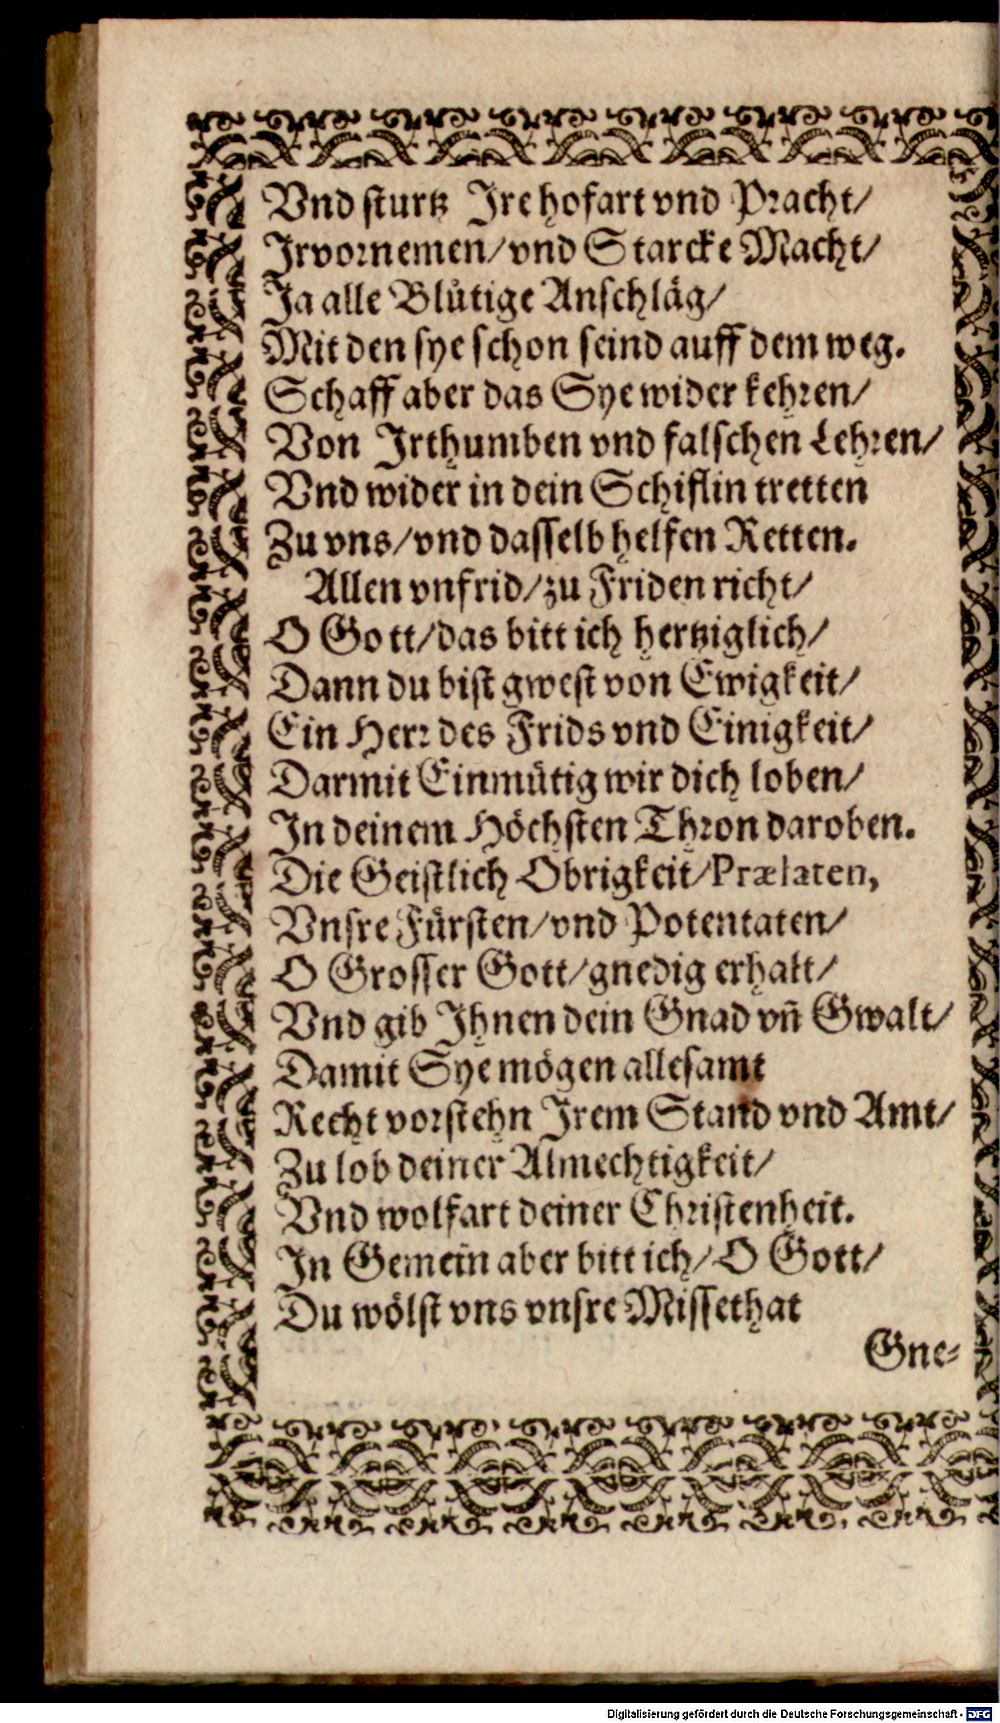 Vnd sturtz Ire hofart vnd Pracht/
Irvornemen/vnd Starcke Macht/
Ja alle Blütige Anschläg/
Mit den sye schon seind auff dem weg.
Schaff aber das Sye wider kehren/
Von Irthumben vnd falschen Lehren/
Vnd wider in dein Schiflin tretten
Zu vns/vnd dasselb helfen Retten.
Allen vnfrid/zu Friden richt/
O Gott/das bitt ich hertziglich/
Dann du bist gwest von Ewigkeit/
Ein Herr des Frids vnd Einigkeit/
Darmit Einmütig wir dich loben/
In deinem Höchsten Thron daroben.
Die Geistlich Obrigkeit/Prælaten,
Vnsre Fürsten/vnd Potentaten/
O Grosser Gott/gnedig erhalt/
Vnd gib Ihnen dein Gnad vñ Gwalt/
Damit Sye mögen allesamt
Recht vorstehn Irem Stand vnd Amt/
Zu lob deiner Almechtigkeit/
Vnd wolfart deiner Christenheit.
In Gemein aber bitt ich/O Gott/
Du wölst vns vnsre Missethat
Gne-
Digitalisierung gefördert durch die Deutsche Forschungsgemeinschaft - DFG